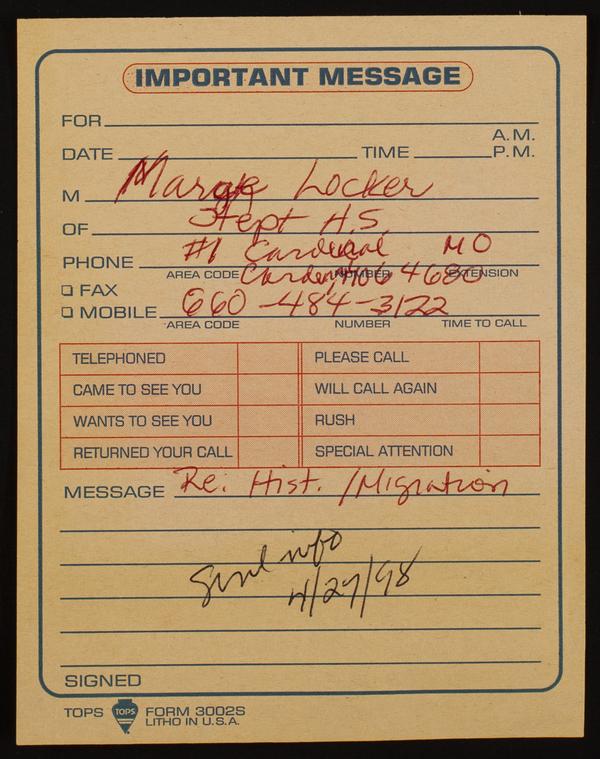 IMPORTANT MESSAGE
FOR
A.M.
DATE TIME P.M.
M Marge Locker
OF Stept H.S.
PHONE #1 Cardinal MO
AREA CODE NUMBER EXTENSION
64680
☐ FAX
☐ MOBILE 660-484-3122
AREA CODE NUMBER TIME TO CALL
TELEPHONED PLEASE CALL
CAME TO SEE YOU WILL CALL AGAIN
WANTS TO SEE YOU RUSH
RETURNED YOUR CALL SPECIAL ATTENTION
MESSAGE Re: Hist. /Migration
info
4/27/98
SIGNED
TOPS TOPS FORM 3002S
LITHO IN U.S.A.